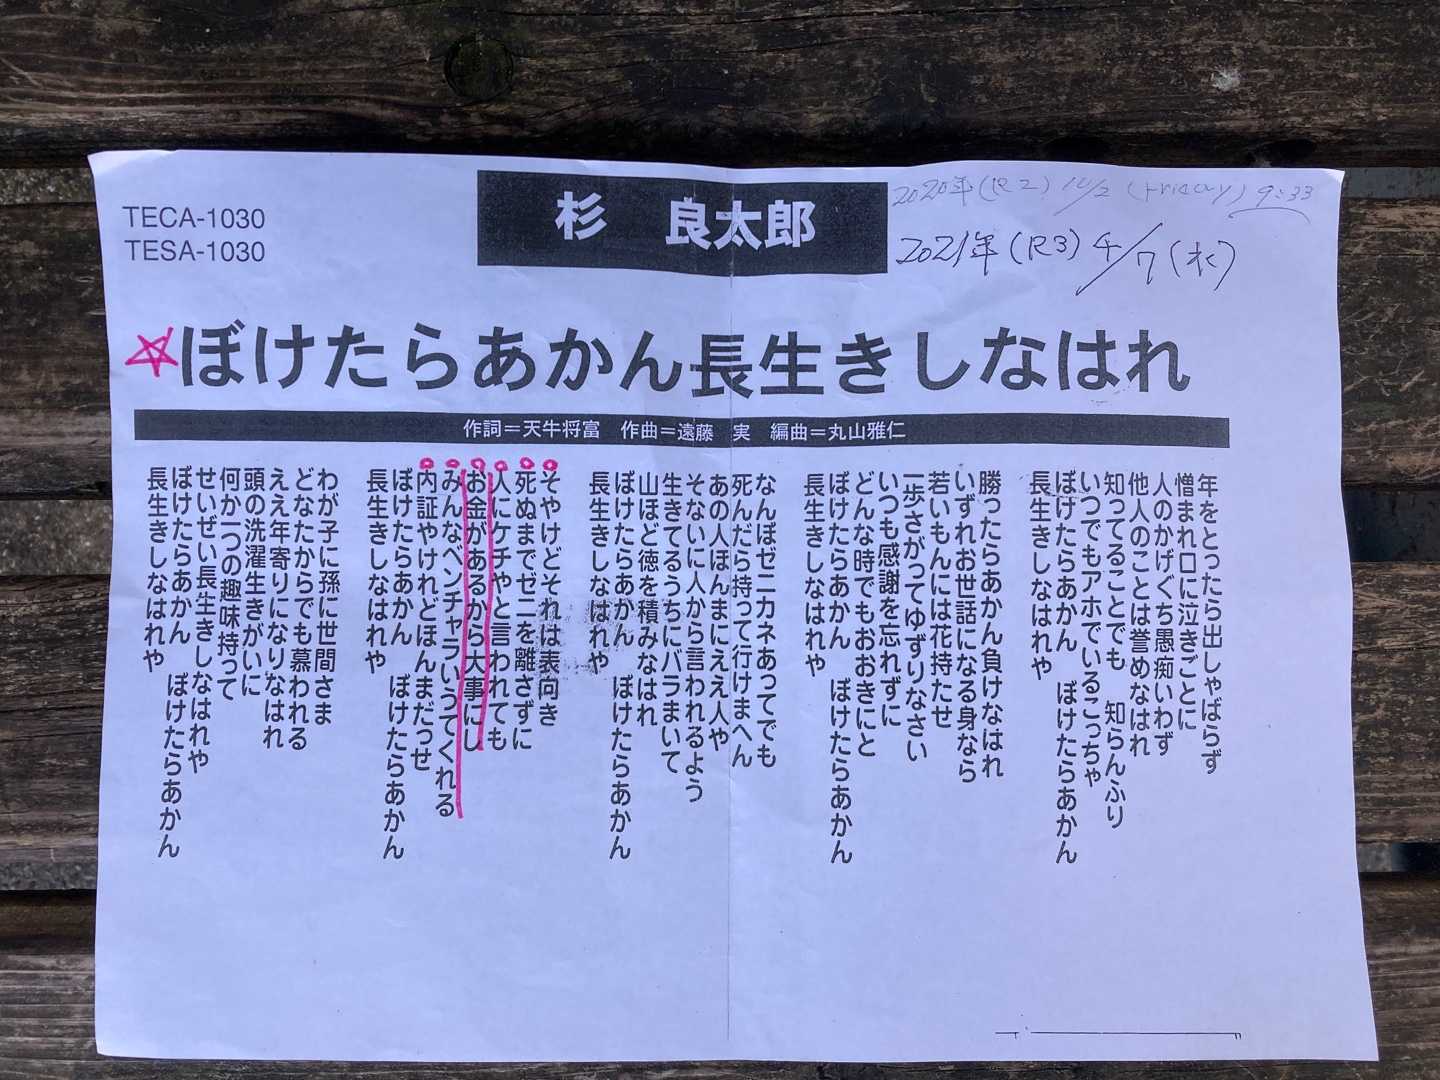 TECA-1030
TESA-1030
杉 良太郎
2020年(R2) 10/2 (Friday) 9:33
2021年(R3) 4/7(水)
ぼけたらあかん長生きしなはれ
作詞=天牛将富 作曲=遠藤 実 編曲=丸山雅仁
年をとったら出しゃばらず
憎まれ口に泣きごとに
人のかげぐち愚痴いわず
他人のことは誉めなはれ
知ってることでも 知らんふり
いつでもアホでいるこっちゃ
ぼけたらあかん ぼけたらあかん
長生きしなはれや
勝ったらあかん負けなはれ
いずれお世話になる身なら
若いもんには花持たせ
一歩さがってゆずりなさい
いつも感謝を忘れずに
どんな時でもおおきにと
ぼけたらあかん ぼけたらあかん
長生きしなはれや
なんぼゼニカネあってでも
死んだら持って行けまへん
あの人ほんまにええ人や
そないに人から言われるよう
生きてるうちにバラまいて
山ほど徳を積みなはれ
ぼけたらあかん ぼけたらあかん
長生きしなはれや
そやけどそれは表向き
死ぬまでゼニを離さずに
人にケチやと言われても
お金があるから大事にし
みんなベンチャラいうてくれる
内証やけれどほんまだっせ
ぼけたらあかん ぼけたらあかん
長生きしなはれや
わが子に孫に世間さま
どなたからでも慕われる
ええ年寄りになりなはれ
頭の洗濯生きがいに
何か一つの趣味持って
せいぜい長生きしなはれや
ぼけたらあかん ぼけたらあかん
長生きしなはれや